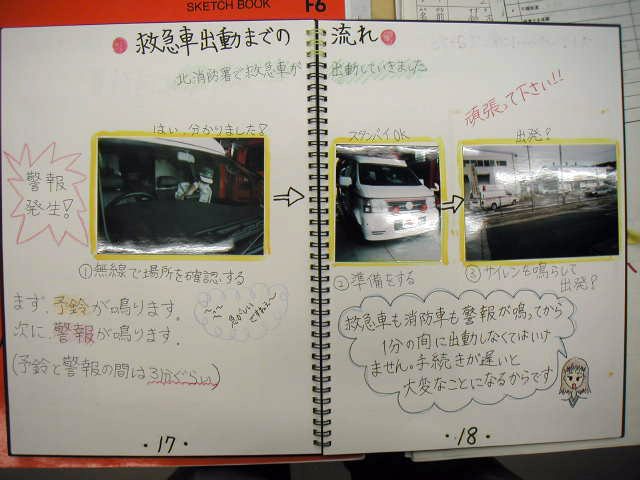 SKETCH BOOK F6
救急車出動までの 流れ
北消防署で救急車が 出動していきました
頑張って下さい!!
はい、分かりました!
警報
発生!
①無線で場所を確認する
まず、予鈴が鳴ります。
次に、警報が鳴ります。
(予鈴と警報の間は3分ぐらい)
・17・
スタンバイOK
②準備をする
出発!
③サイレンを鳴らして
出発!
救急車も消防車も警報が鳴ってから
1分の間に出動しなくてはいけ
ません。手続きが遅いと
大変なことになるからです
・18・